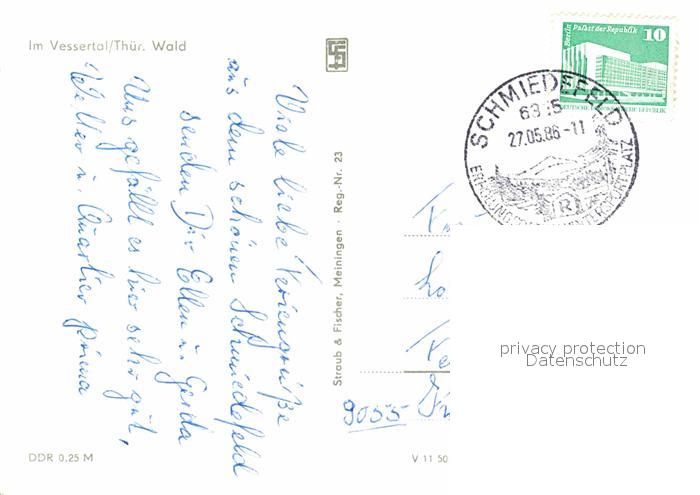 Im Vessertal/Thür. Wald
Viele liebe Feriengrüße
aus dem schönen Schmiedefeld
senden Dir Ellen u. Gerda
Uns gefällt es hier sehr gut,
Wetter u. Quartier prima
DDR 0,25 M
Straub & Fischer, Meiningen · Reg.-Nr. 23
V 11 50
Berlin Palast der Republik
10
DEUTSCHE DEMOKRATISCHE REPUBLIK
SCHMIEDEFELD
27.05.86-11
(R)
9055
privacy protection
Datenschutz